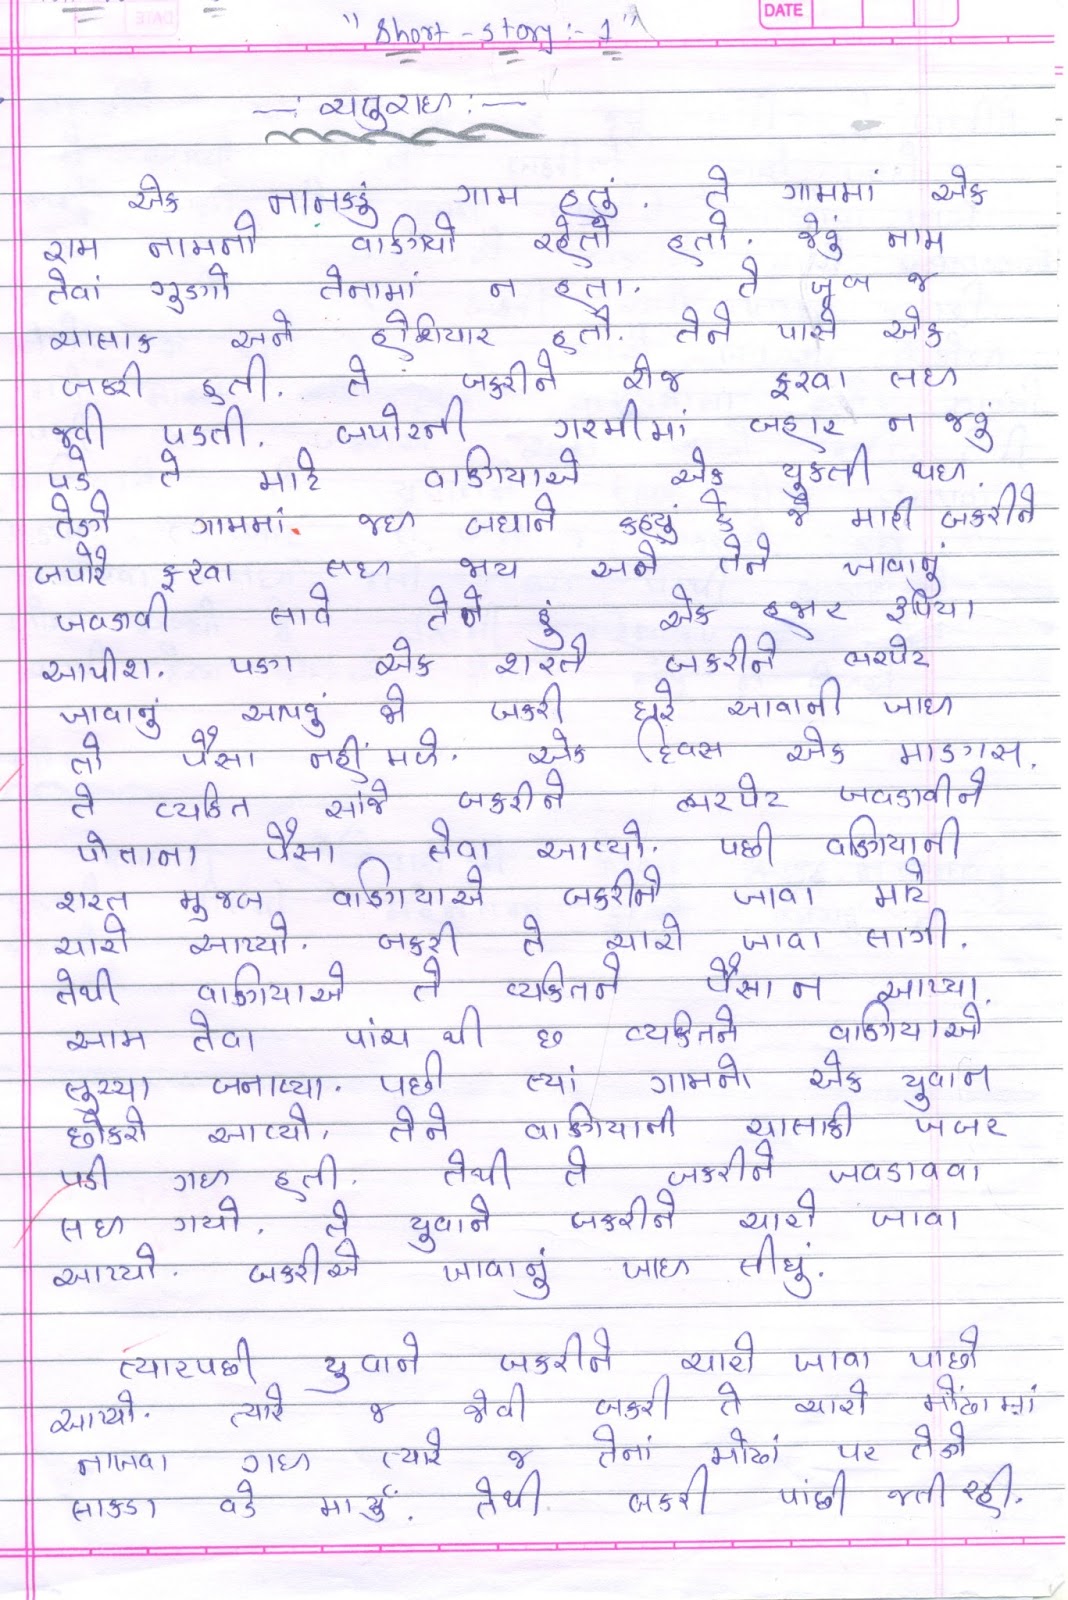 "Short - Story :- 1"
DATE
—: ચતુરાઇ :—
એક નાનકડું ગામ હતું. તે ગામમાં એક
રામ નામનો વાણિયો રહેતો હતો. જેવું નામ
તેવાં ગુણો તેનામાં ન હતા. તે ખૂબ જ
ચાલાક અને હોશિયાર હતો. તેને પાસે એક
બકરી હતી. તે બકરીને રોજ ફરવા લઇ
જવી પડતી. બપોરની ગરમીમાં બહાર ન જવું
પડે તે માટે વાણિયાએ એક યુકતી થઇ.
તેણે ગામમાં જઇ બધાને કહયું કે જે મારી બકરીને
બપોરે ફરવા લઇ જાય અને તેને ખાવાનું
ખવડાવી લાવે તેને હું એક હજાર રૂપિયા
આપીશ. પણ એક શરતે બકરીને ભરપેટ
ખાવાનું આપવું જો બકરી ઘરે આવાની ખાઇ
તો પૈસા નહીં મળે. એક દિવસ એક માણસ.
તે વ્યકિત સાંજે બકરીને ભરપેટ ખવડાવીને
પોતાના પૈસા લેવા આવ્યો. પછી વાણિયાની
શરત મુજબ વાણિયાએ બકરીને ખાવા માટે
ચારો આપ્યો. બકરી તે ચારો ખાવા લાગી.
તેથી વાણિયાએ તે વ્યકિતને પૈસા ન આપ્યા.
આમ તેવા પાંચ થી છ વ્યકિતને વાણિયાએ
લુચ્ચા બનાવ્યા. પછી ત્યાં ગામનો એક યુવાન
છોકરો આવ્યો. તેને વાણિયાની ચાલાકી ખબર
પડી ગઇ હતી. તેથી તે બકરીને ખવડાવવા
લઇ ગયો. તે યુવાને બકરીને ચારો ખાવા
આપ્યો. બકરીએ ખાવાનું ખાઇ લીધું.
ત્યારપછી યુવાને બકરીને ચારો ખાવા પાછો
આપ્યો. ત્યારે જ જેવી બકરી તે ચારો મોંઢામાં
નાખવા ગઇ ત્યારે જ તેનાં મોઢાં પર તેણે
લાકડા વડે માર્યું. તેથી બકરી પાંછી જતી રહી.